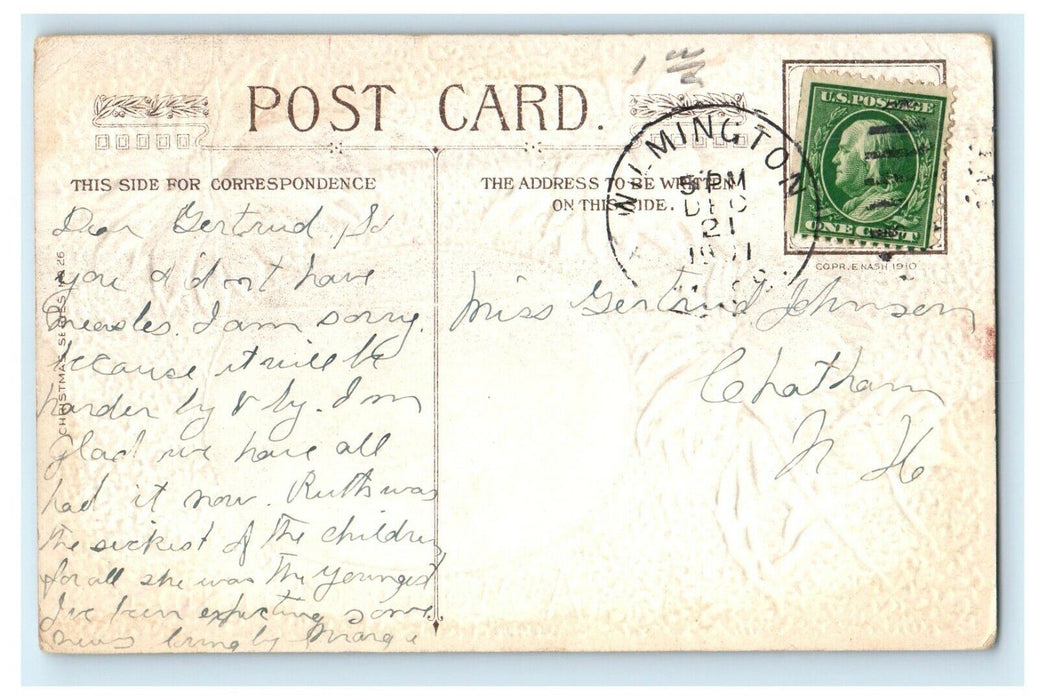 POST CARD.
THIS SIDE FOR CORRESPONDENCE
THE ADDRESS TO BE WRITTEN
ON THIS SIDE.
WILMINGTON
5 PM
DEC
21
U.S. POSTAGE
ONE CENT
COPR. E. NASH 1910
CHRISTMAS SERIES No 26
Dear Gertrud, So
you didn't have
measles. I am sorry.
because it will be
harder by & by. I am
glad we have all
had it now. Ruth was
the sickest of the children,
for all she was the youngest
I've been expecting some
news
Miss Gertrud Johnson
Chatham
N H